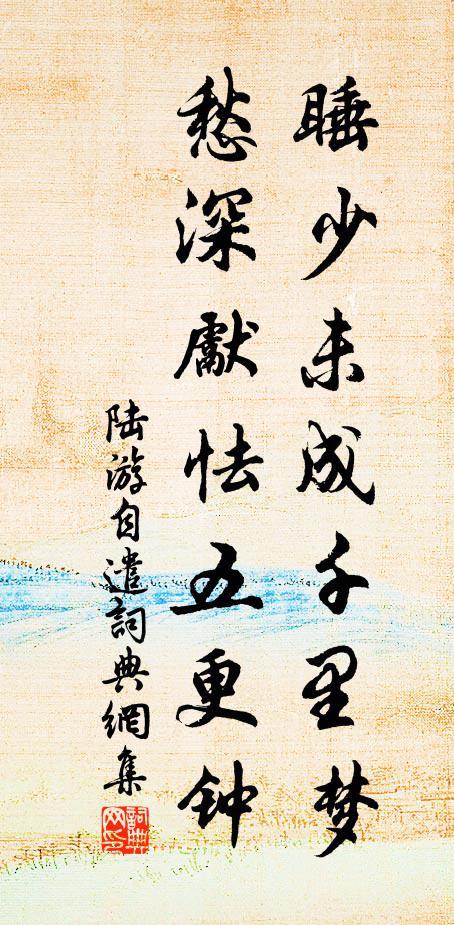 睡少未成千里梦
愁深獻怯五更钟
陆游自遣詞典網集
詞典
网印